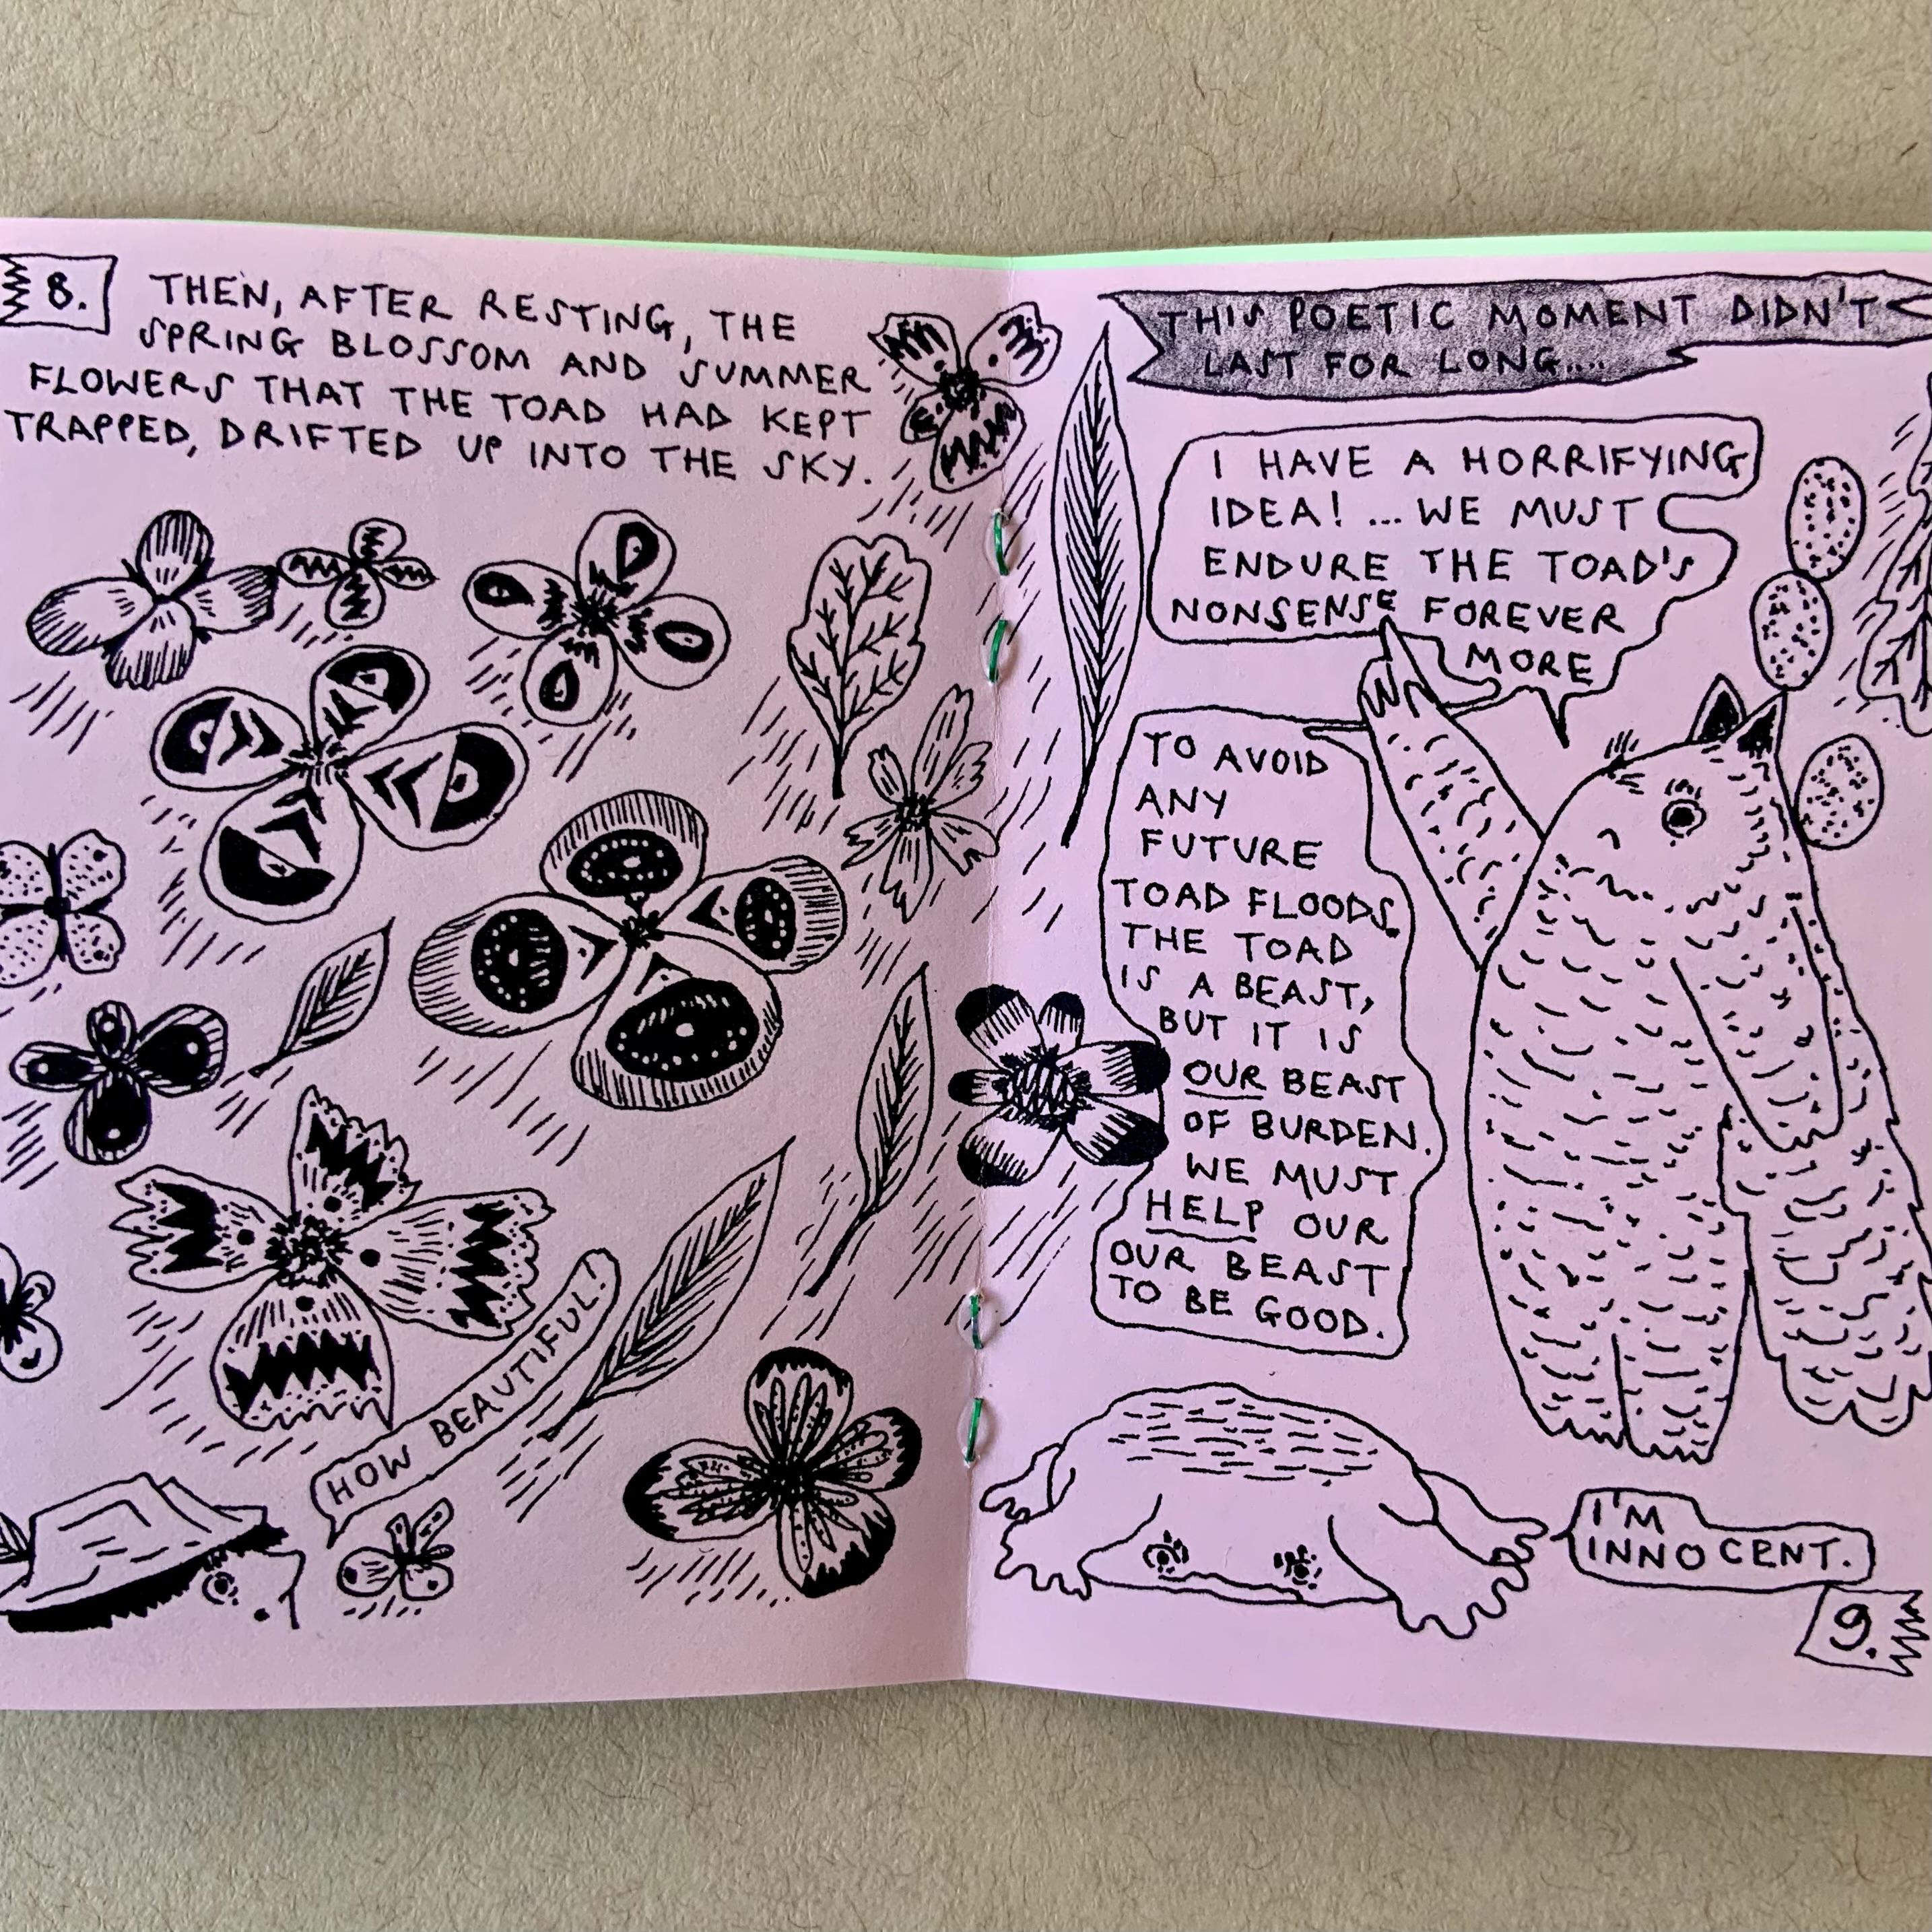 8.
THEN, AFTER RESTING, THE
SPRING BLOSSOM AND SUMMER
FLOWERS THAT THE TOAD HAD KEPT
TRAPPED, DRIFTED UP INTO THE SKY.
HOW BEAUTIFUL!
THIS POETIC MOMENT DIDN'T
LAST FOR LONG....
I HAVE A HORRIFYING
IDEA! ... WE MUST
ENDURE THE TOAD'S
NONSENSE FOREVER
MORE
TO AVOID
ANY
FUTURE
TOAD FLOODS.
THE TOAD
IS A BEAST,
BUT IT IS
OUR BEAST
OF BURDEN.
WE MUST
HELP OUR
OUR BEAST
TO BE GOOD.
I'M
INNOCENT.
9.